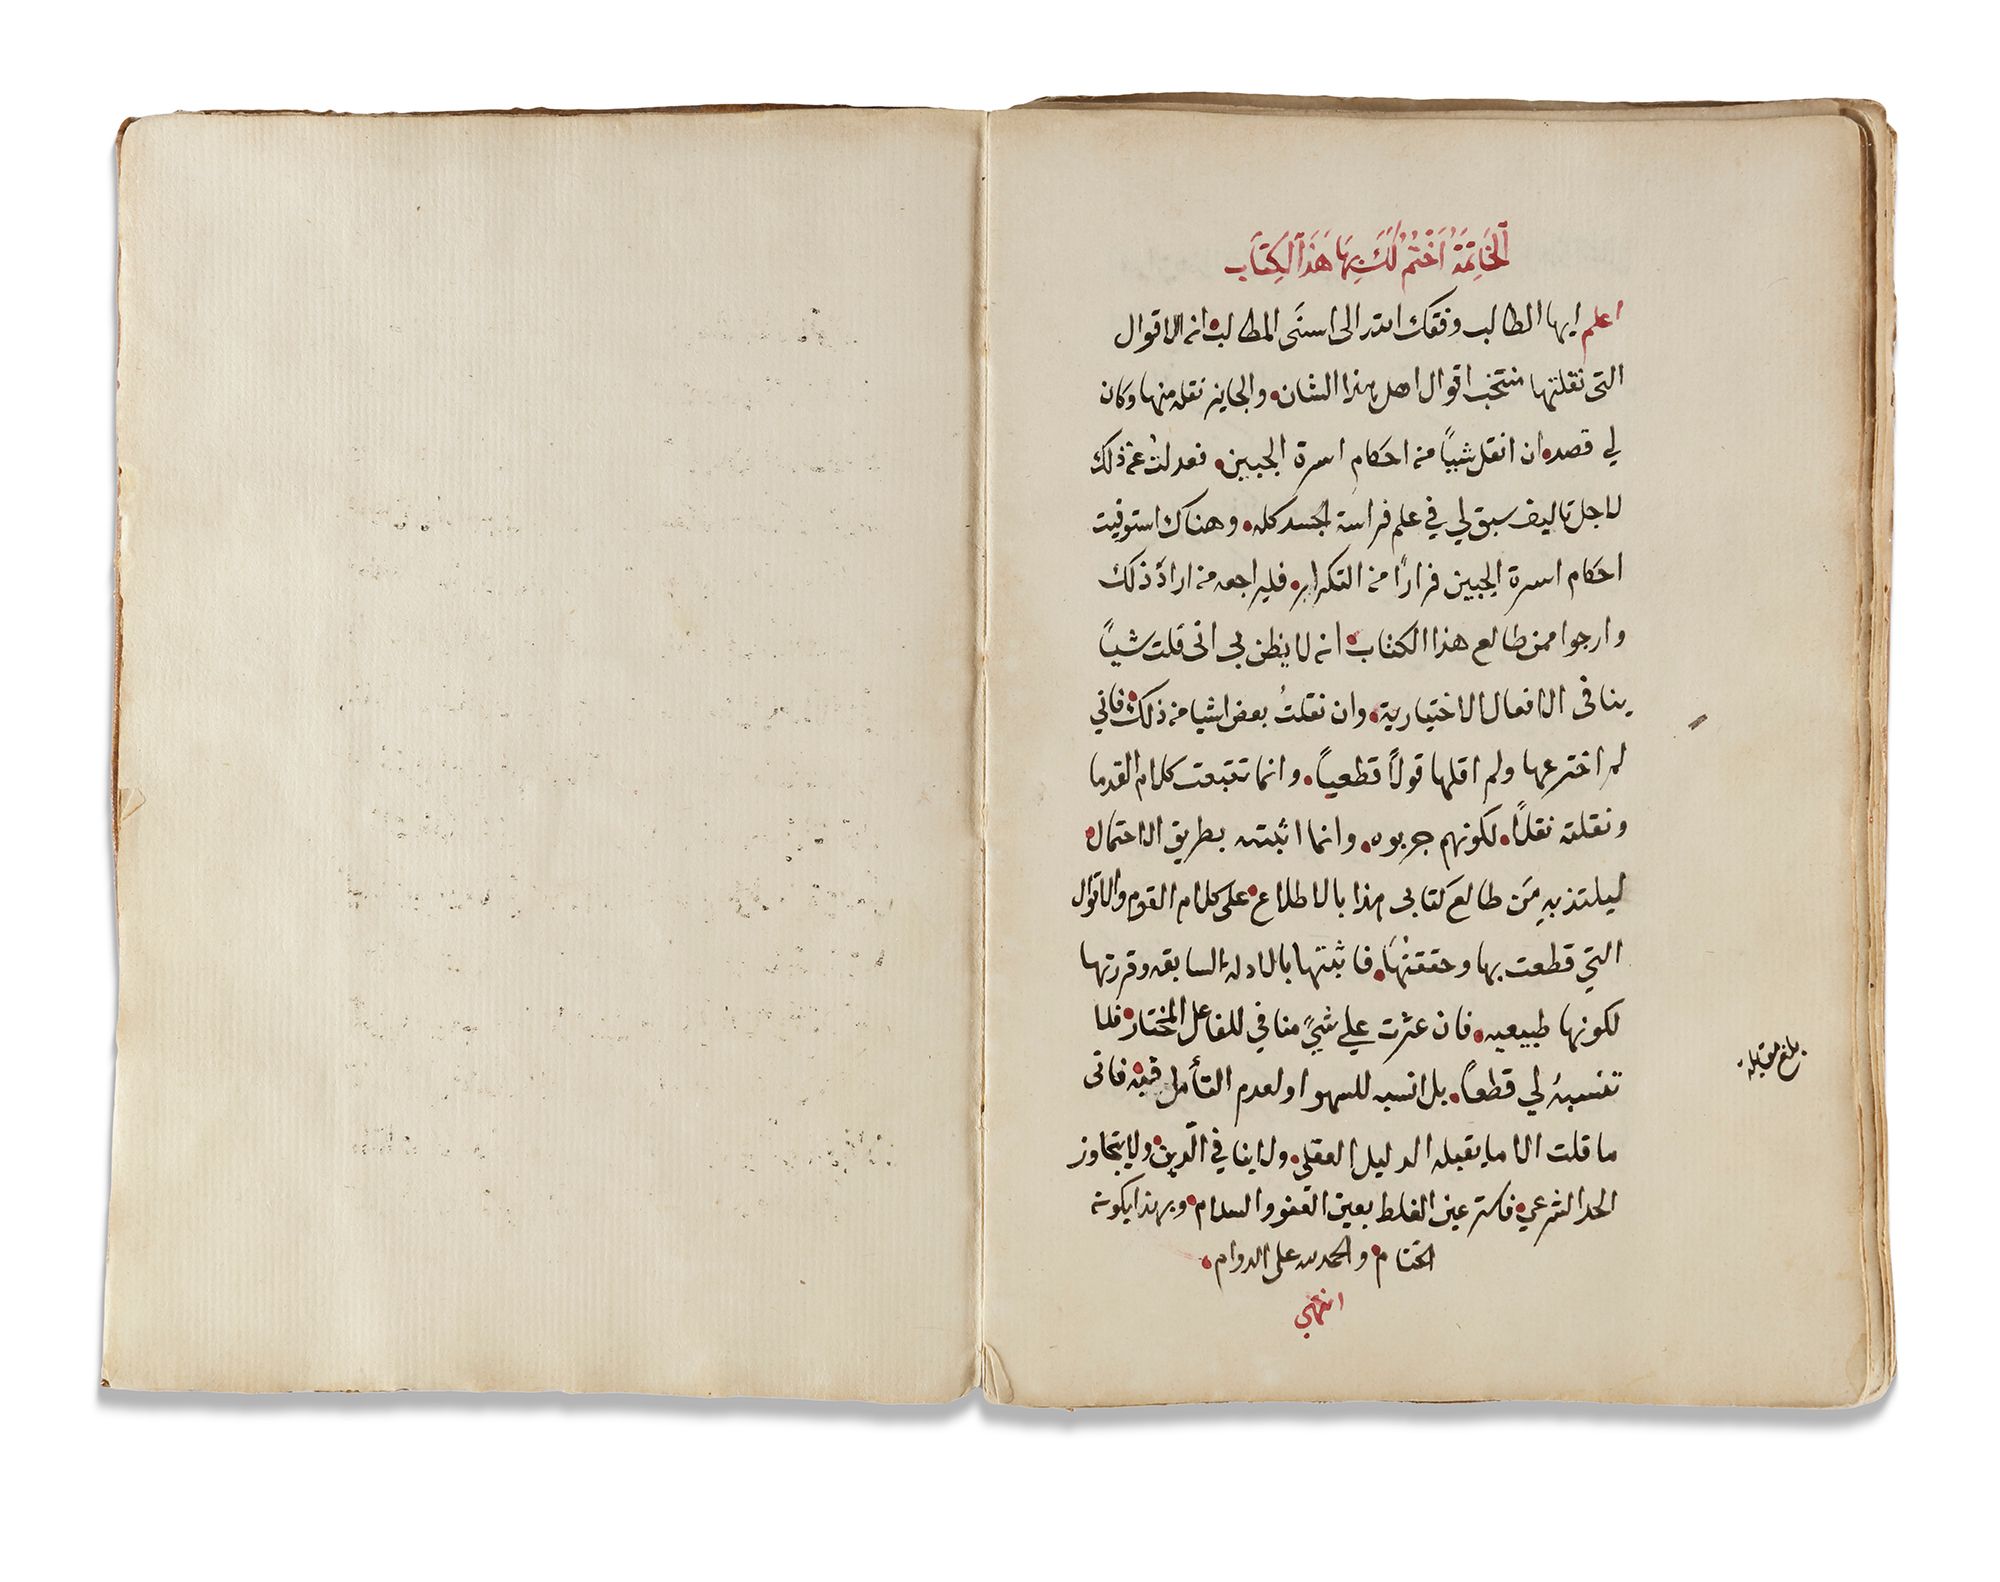 اَلْخَاتِمَةُ اَخْتُمُ لَكَ بِهَا هَذَا اَلْكِتَابِ
اعلم ايها الطالب وفقك الله الى اسنَى المطالب انه الاقوال
التى نقلتها منتخب اقوال اهل هذا الشان والجايز نقله منها وكان
لي قصد ان انقل شيياً من احكام اسرة الجبين فعدلت عن ذلك
لاجل تاليف سبق لي في علم فراسة الجسد كله وهناك استوفيت
احكام اسرة الجبين فراراً من التكرار فليراجعه من ارادَ ذلك
وارجوا ممن طالع هذا الكتاب انه لا يظن بى انى قلت شياً
ينافى الافعال الاختيارية وان نقلتُ بعض اشيا من ذلك فاني
لم اخترعها ولم اقلها قولاً قطعياً وانما تتبعت كلام القدما
ونقلته نقلاً لكونهم جربوه وانما اثبته بطريق الاحتمال
ليلتذ بهِ مَن طالع كتابى هذا بالاطلاع على كلام القوم والاقوال
التي قطعت بها وحققتُهَا فاثبتها بالادلة السابقه وقررتها
لكونها طبيعيه فان عثرت علي شيٍ منافي للفاعل المختار فلا
تنسبهُ لي قطعاً بل انسبه للسهو او لعدم التأمل فيه فانى
ما قلت الا ما يقبله الدليل العقلى ولا ينافي الدين ولا يتجاوز
الحد الشرعي فاستر عين الغلط بعين العفو والسلام وبهذا يكون
الختام والحمد لله على الدوام
انتهي
بلغ مقابله